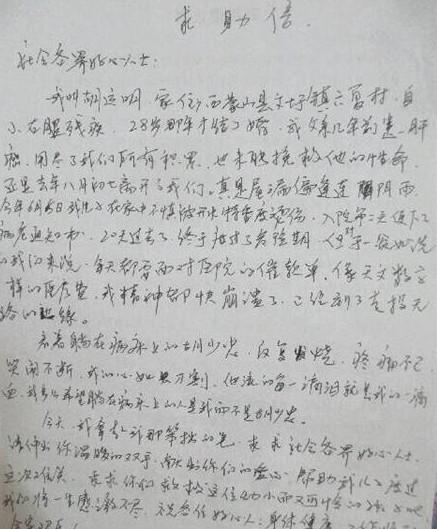 求助信
社会各界好心人士:
我叫胡运明,家住广西蒙山县文圩镇六富村,自
小右腿残疾,28岁那年才结了婚,我父亲几年前患肝
癌,用尽了我们所有积累,也未能挽救他的性命
还是去年八月初七离开了我们,真是屋漏偏逢连阴雨
今年6月6日我儿子在家中不慎被开水特重度烫伤,入院第二天便下了
病危通知书,20天过去了,终于渡过了危险期,但对于一贫如洗
的我们来说,每天都要面对医院的催款单,像天文数字
一样的医疗费,我精神都快崩溃了,已经到了走投无
路的地步。
看着躺在病床上的胡少忠,反复发烧,疼痛不已
哭闹不断,我的心如刀割,他流的每一滴泪就是我的一滴
血,我多么希望躺在病床上的人是我而不是胡少忠。
今天,我拿起我那笨拙的笔,求求社会各界好心人士
请伸出你温暖的双手,献出你们的爱心,帮助我儿子度过
这次难关,求求你们救救这位幼小而又可怜的孩子吧
我们将一生感激不尽,祝各位好心人:身体健康